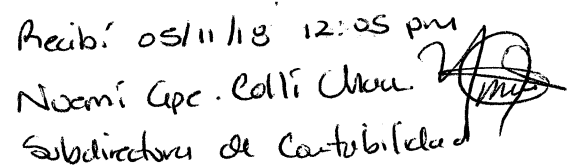 Recibí 05/11/18 12:05 pm
Noemí Gpe. Collí Chan
Subdirectora de Contabilidad